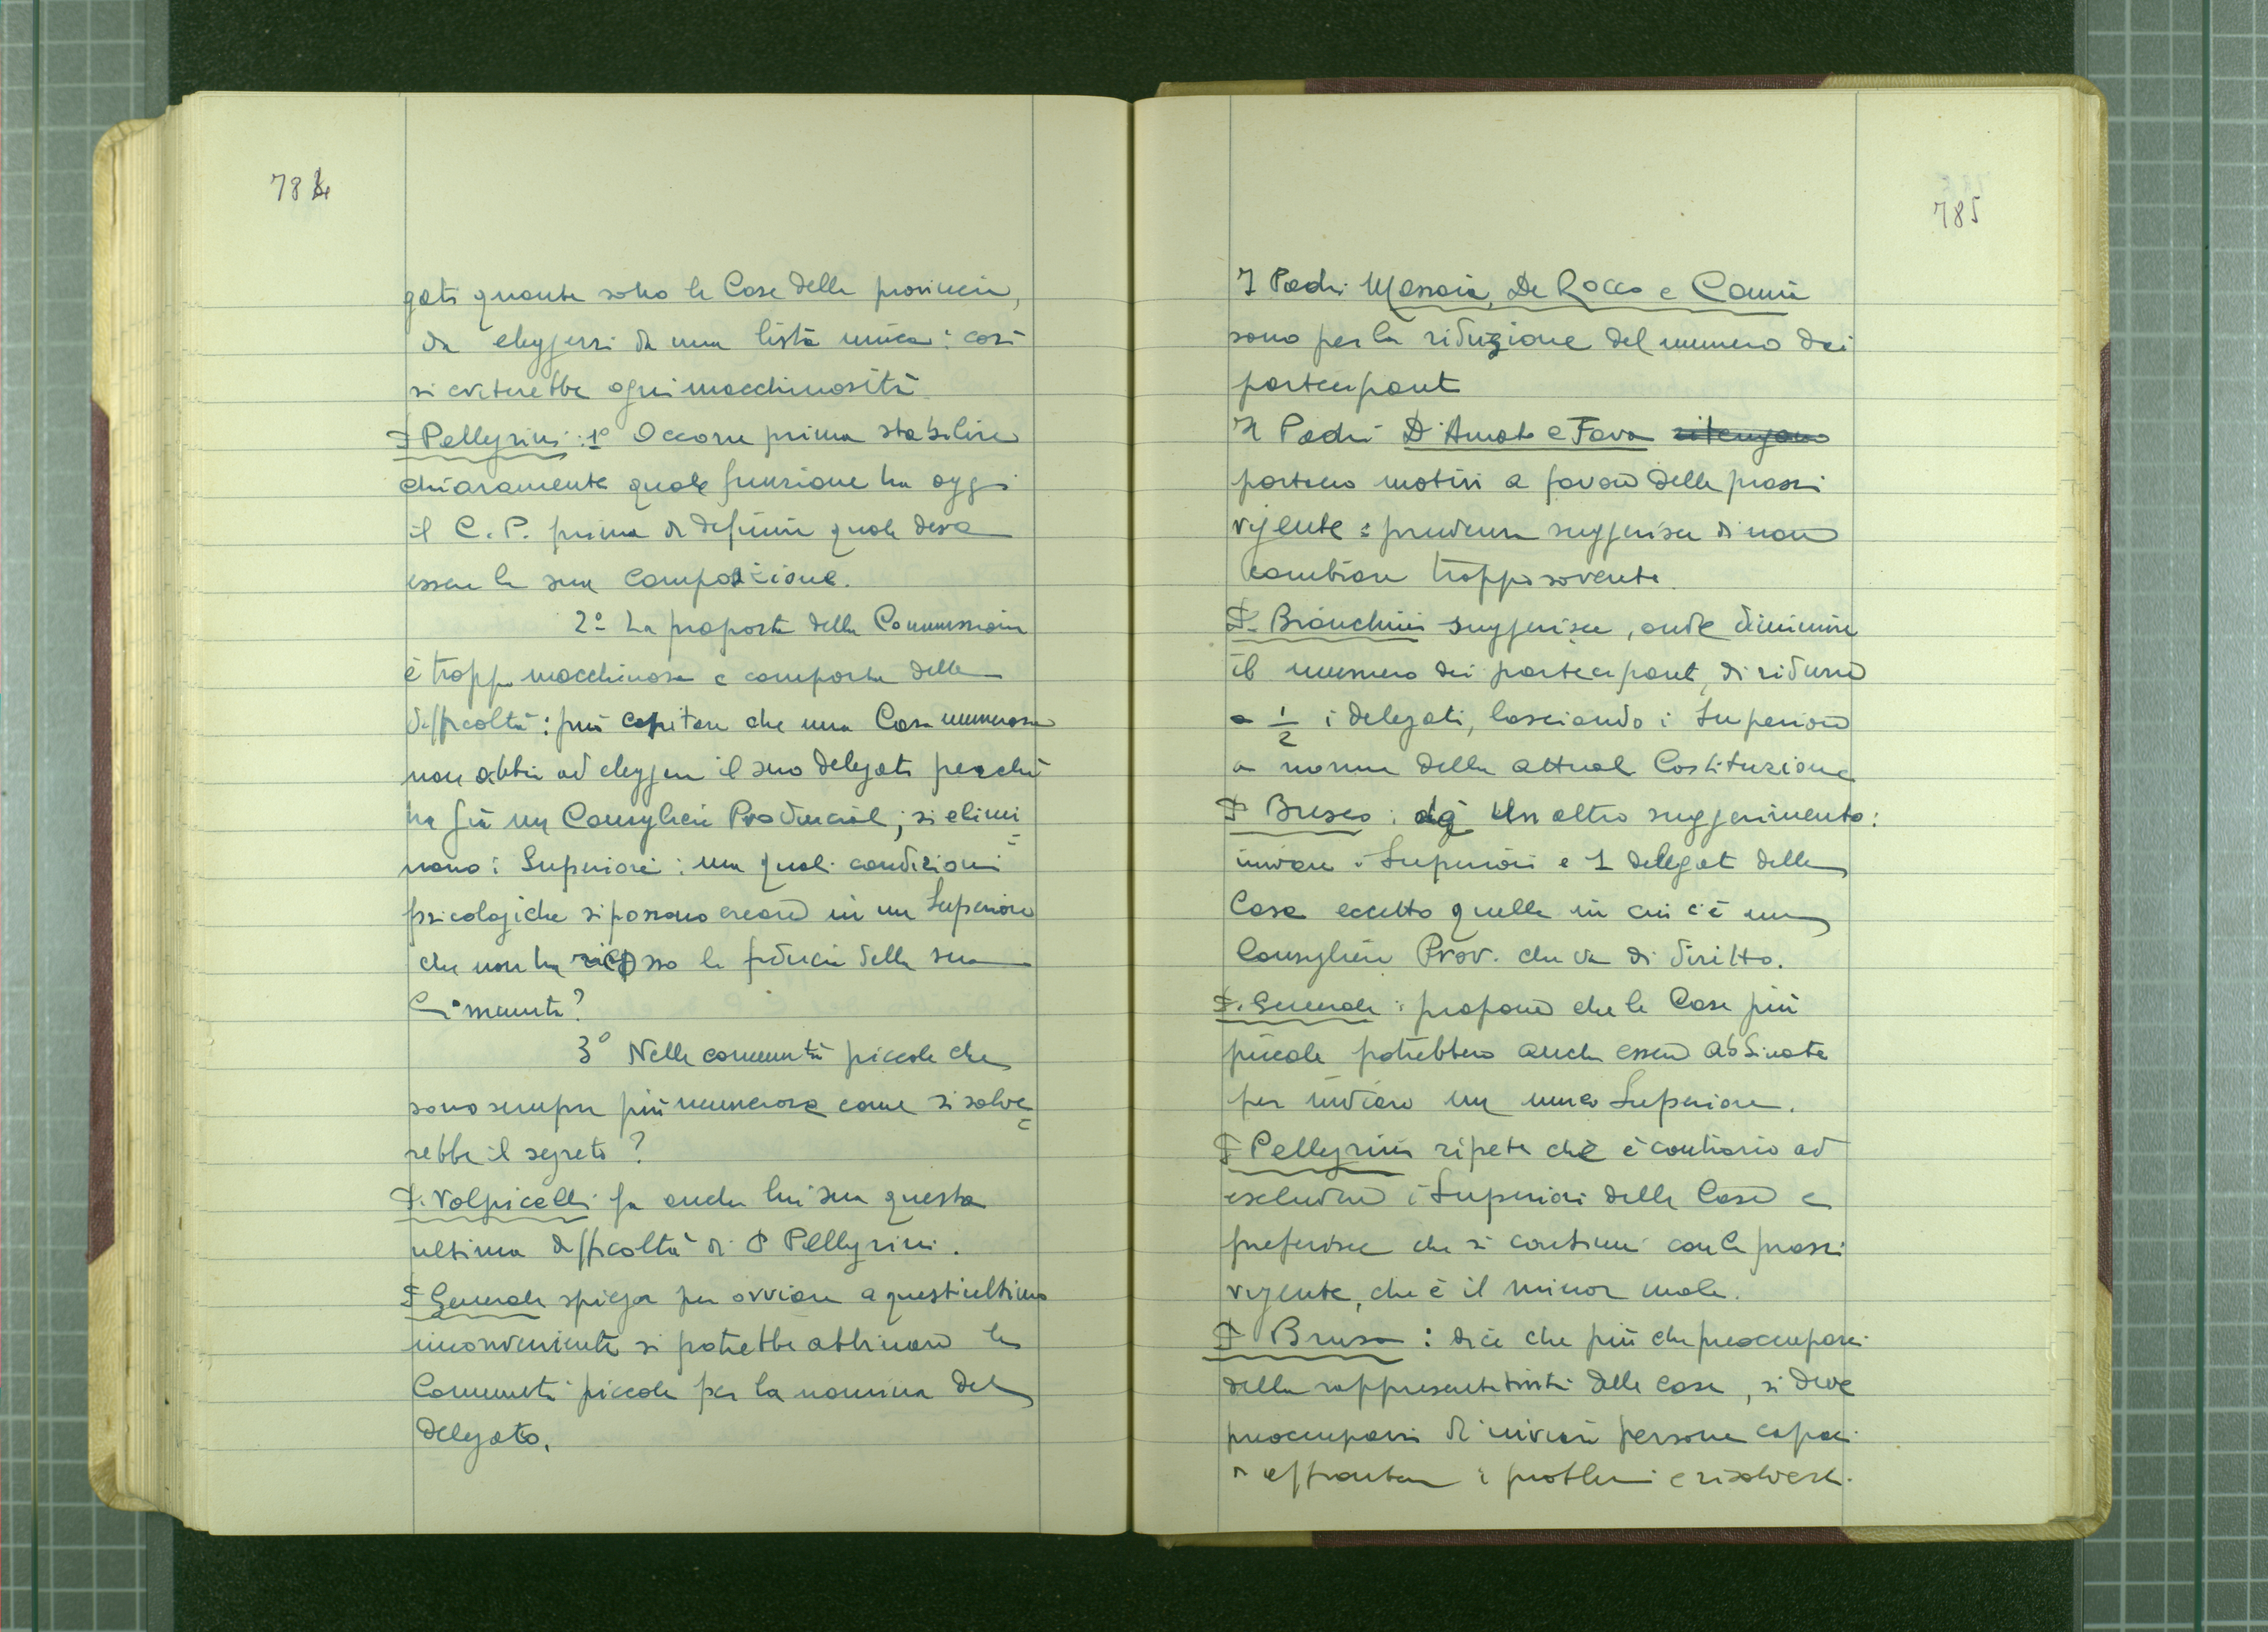 784
gati quante sono le Case della provincia,
da eleggersi da una lista unica: così
si eviterebbe ogni macchinosità
P Pellegrini: 1° Occorre prima stabilire
chiaramente quale funzione ha oggi
il C. P. prima di definire quale deva
essere la sua composizione.
2° La proposta della Commissione
è troppo macchinosa e comporta delle
difficoltà: può capitare che una Casa numerosa
non abbia ad eleggere il suo delegato perché
ha già un Consigliere Provinciale; si elimi
nano i Superiori: ma quali condizioni
psicologiche si possono creare in un Superiore
che non ha riscosso la fiducia della sua
Comunità?
3° Nelle comunità piccole che
sono sempre più numerose come si salve
rebbe il segreto?
P. Volpicelli fa anche lui sua questa
ultima difficoltà di P Pellegrini.
P Generale spiega per ovviare a quest'ultimo
inconveniente si potrebbe abbinare le
Comunità piccole per la nomina del
delegato.
785
I Padri Massaia, De Rocco e
sono per la riduzione del numero dei
partecipanti
I Padri D'Amato e Fava ritengono
portano motivi a favore della prassi
vigente: prudenza suggerisce di non
cambiare troppo sovente.
P. Bianchini suggerisce, onde diminuire
il numero dei partecipanti, di ridurre
a 1/2 i delegati, lasciando i Superiori
a norma della attuale Costituzione
P Busco: dà un altro suggerimento:
inviare i Superiori e 1 delegato delle
Case eccetto quelle in cui c'è un
Consigliere Prov. che va di diritto.
P. Generale: propone che le Case più
piccole potrebbero anche essere abbinate
per inviare un unico Superiore.
P Pellegrini ripete che è contrario ad
escludere i Superiori delle Case e
preferisce che si continui con la prassi
vigente, che è il minor male.
P Brusa: dice che più che preoccuparsi
della rappresentatività delle case, si deve
preoccuparsi di inviare persone capaci
di affrontare i problemi e risolverli.